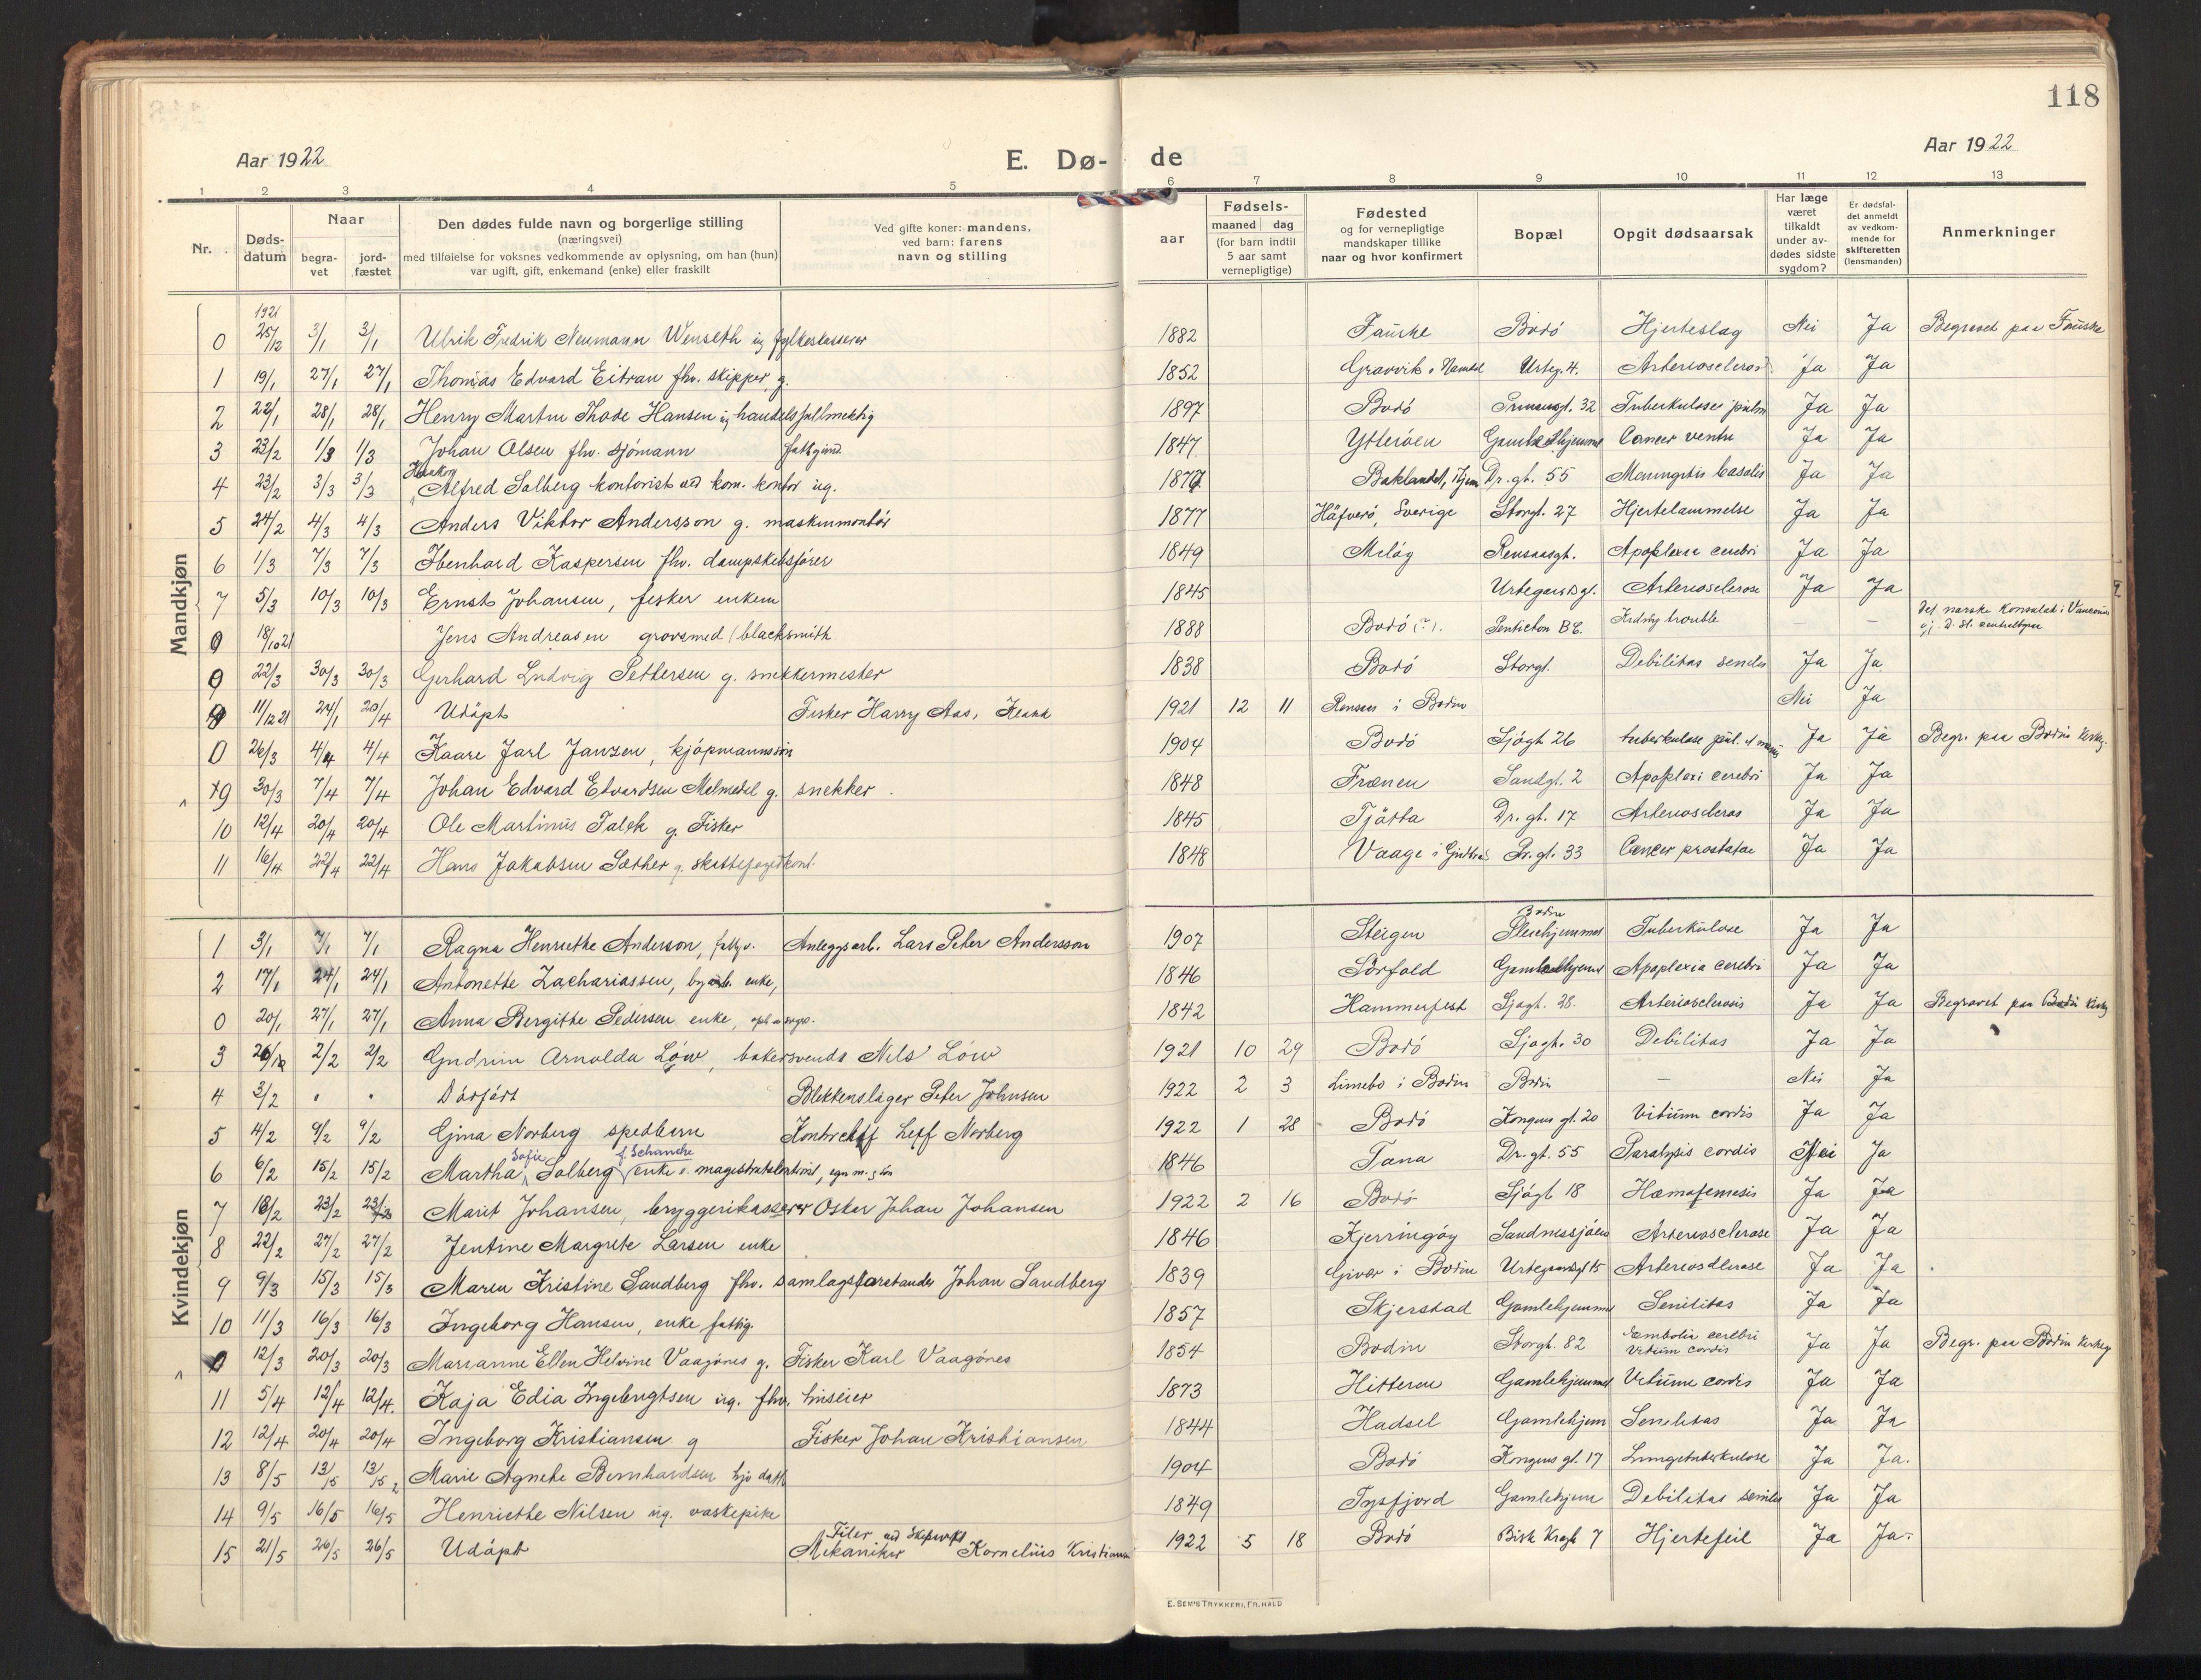 118
Aar 1922
E. Dø-
de
Aar 1922
1 2 3 4 5 6 7 8 9 10 11 12 13
Nr.
Døds-
datum
Naar
begra-
vet
jord-
fæstet
Den dødes fulde navn og borgerlige stilling
(næringsvei)
med tilføielse for voksnes vedkommende av oplysning, om han (hun)
var ugift, gift, enkemand (enke) eller fraskilt
Ved gifte koner: mandens,
ved barn: farens
navn og stilling
aar
Fødsels-
maaned dag
(for barn indtil
5 aar samt
vernepligtige)
Fødested
og for vernepligtige
mandskaper tillike
naar og hvor konfirmert
Bopæl
Opgit dødsaarsak
Har læge
været
tilkaldt
under av-
dødes sidste
sygdom?
Er dødsfal-
det anmeldt
av vedkom-
mende for
skifteretten
(lensmanden)
Anmerkninger
Mandkjøn
1921
0 25/12 3/1 3/1 Ulrik Fredrik Neumann Wenseth ug fylkeskasserer 1882 Fauske Bodó Hjerteslag Nei Ja Begravet paa Fauske
1 19/1 27/1 27/1 Thomas Edvard Eitran fhv. skipper g. 1852 Gravvik i Namdal Urteg. 4. Arteriosclerose Ja Ja
2 22/1 28/1 28/1 Henry Martin Thode Hansen ug handelsfullmektig 1897 Bodó Prinsensgt. 32 Tuberkulose pulm Ja Ja
3 23/2 1/3 1/3 Johan Olsen fhv. sjómann fattigund. 1847 Ytteróen Gamlehjemmet Cancer ventr Ja Ja
4 23/2 3/3 3/3 Haakon Alfred Solberg kontorist ved kom. kontor ug. 1877 Baklandet, Tjem Dr. gt. 55 Meningitis basalis Ja Ja
5 24/2 4/3 4/3 Anders Viktor Andersson g. maskinmontör 1877 Häfveró, Sverige Storgt. 27 Hjertelammelse Ja Ja
6 1/3 7/3 7/3 Ibenhard Kaspersen fhv. dampskibsfører 1849 Meløy Rensaasgt. Apoplexia cerebri Ja Ja
7 5/3 10/3 10/3 Ernst Johansen, fisker enkem 1845 Urtegaardsgt. Arteriosclerose Ja Ja
0 18/10 21 Jens Andreasen grovsmed (blacksmith 1888 Bodó (?). Penticton B.C. Kidney trouble — — Det norske Konsulat i Vancouver
0 22/3 30/3 30/3 Gerhard Ludvig Pettersen g. snekkermester 1838 Bodó Storgt. Debilitas senilis Ja Ja
11/12 21 24/1 20/4 Udöpt Fisker Harry Aas, 1921 12 11 Rensaas i Bodin Nei Ja
0 26/3 4/4 4/4 Kaare Jarl Janzen, kjópmannssön 1904 Bodó Sjógt 26 tuberkulose pul. Ja Ja Begr. paa Bodin kirkeg.
9 30/3 7/4 7/4 Johan Edvard Edvardsen Melmedel g. snekker. 1848 Frænen Sandgt. 2 Apoplexi cerebri Ja Ja
10 12/4 20/4 20/4 Ole Martinus Falch g. Fisker 1845 Tjötta Dr. gt. 17 Arterioscleros Ja Ja
11 16/4 22/4 22/4 Hans Jakobsen Sæther g. skattefogedkont. 1848 Vaage i Gudbrds Pr. gt. 33 Cancer prostatae Ja Ja
Kvindekjøn
1 3/1 7/1 7/1 Ragna Henriette Anderson, fattigv. Anleggsarb. Lars Peter Andersson 1907 Steigen Bodin Pleiehjemmet Tuberkulose Ja Ja
2 17/1 24/1 24/1 Antonette Zachariassen, enke, 1846 Sörfold Gamlehjemmet Apoplexia cerebri Ja Ja
0 20/1 27/1 27/1 Anna Bergitte Pedersen enke, 1842 Hammerfest Sjøgt. 28. Arteriosclerosis Ja Ja Begravet paa Bodin kirkeg
3 26/1 2/2 2/2 Gudrun Arnolda Löw, bakersvends Nils Löw 1921 10 29 Bodó Sjøgt. 30 Debilitas Ja Ja
4 3/2 " " Dødfødt Blekkenslager Peter Johnsen 1922 2 3 Limebo i Bodin Bodin — Nei Ja
5 4/2 9/2 9/2 Gina Norberg spedbarn Kontorchef Leif Norberg 1922 1 28 Bodó Kongens gt. 20 Vitium cordis Ja Ja
6 6/2 15/2 15/2 Martha Sofie Solberg f. Schanche enke e. 1846 Tana Dr. gt. 55 Paralysis cordis Nei Ja
7 18/2 23/2 23/2 Marit Johansen, bryggerikasserer Oskar Johan Johansen 1922 2 16 Bodó Sjögt 18 Hæmatemesis Ja Ja
8 22/2 27/2 27/2 Jentine Margrete Larsen enke 1846 Kjerringöy Sandnessjóen Arteriosclerose Ja Ja
9 9/3 15/3 15/3 Maren Kristine Sandberg fhv. samlagsforstander Johan Sandberg 1839 Givær i Bodin Urtegaardsgt 15 Arteriosclerose Ja Ja
10 11/3 16/3 16/3 Ingeborg Hansen, enke fattig. 1857 Skjerstad Gamlehjemmet Senilitas Ja Ja
0 12/3 20/3 20/3 Marianne Ellen Helvine Vaagönes g. Fisker Karl Vaagönes 1854 Bodin Storgt. 82 Embolia cerebri Vitium cordis Ja Ja Begr. paa Bodin kirkeg
11 5/4 12/4 12/4. Kaja Edia Ingebrigtsen ug. fhv. huseier 1873 Hitteren Gamlehjemmet Vitium cordis Ja Ja
12 12/4 20/4 20/4 Ingeborg Kristiansen g Fisker Johan Kristiansen 1844 Hadsel Gamlehjem Senilitas Ja Ja
13 8/5 13/5 13/5 Marie Agnete Bernhardsen hjv datt. 1904 Bodó Kongens gt. 17 Lungetuberkulose Ja Ja.
14 9/5 16/5 16/5 Henriette Nilsen ug. vaskepike 1849 Tysfjord Gamlehjem Debilitas senilis Ja Ja
15 21/5 26/5 26/5 Udöpt Filer ved Skipsverft Mekaniker Kornelius Kristiansen 1922 5 18 Bodó Bisk Krogh 7 Hjertefeil Ja Ja.
E. SEM'S TRYKKERI, FR.HALD